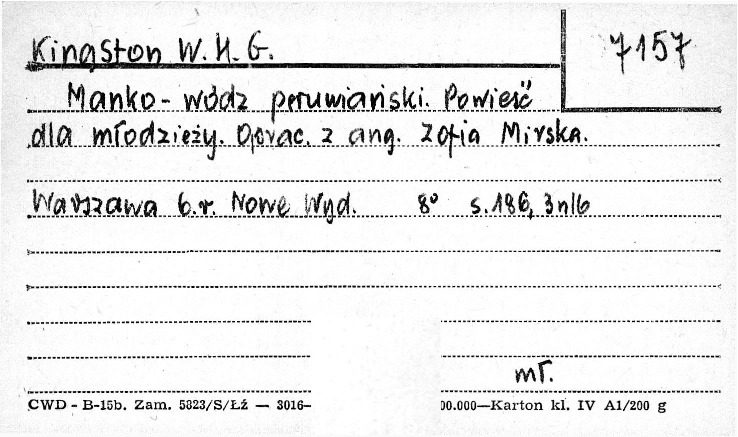 Kingston W.H.G.
7157
Manko - wódz peruwiański. Powieść
dla młodzieży. Oprac. z ang. Zofia Mirska.
Warszawa b.r. Nowe Wyd. 8° s.186, 3nlb
mł.
CWD - B-15b. Zam. 5823/S/Łź — 3016— 00.000—Karton kl. IV A1/200 g